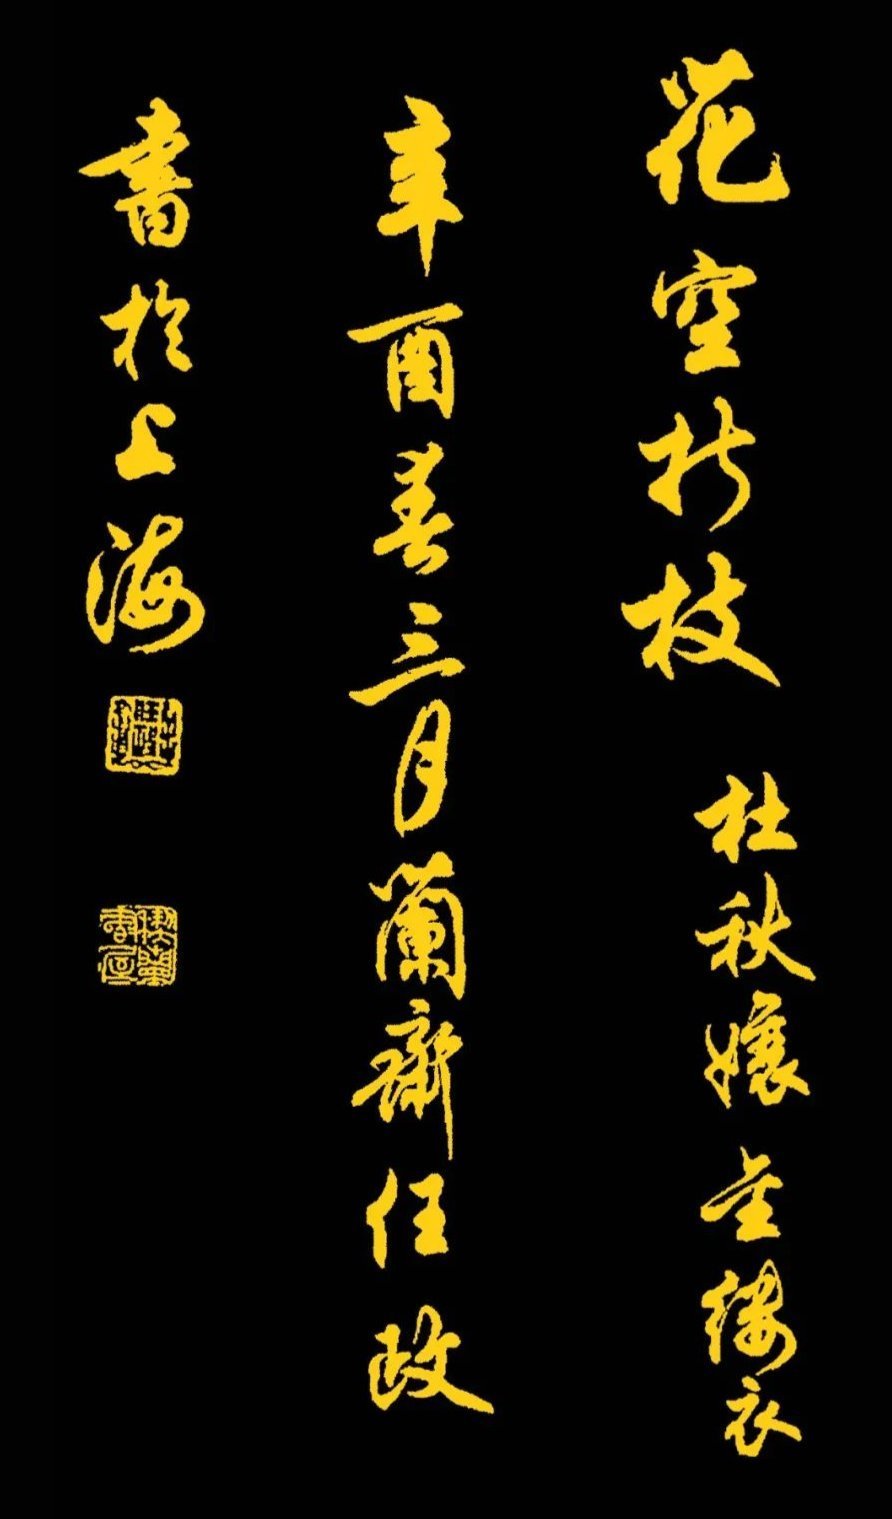 花空折枝 杜秋孃金縷衣
辛酉春三月蘭齋任政
書於上海